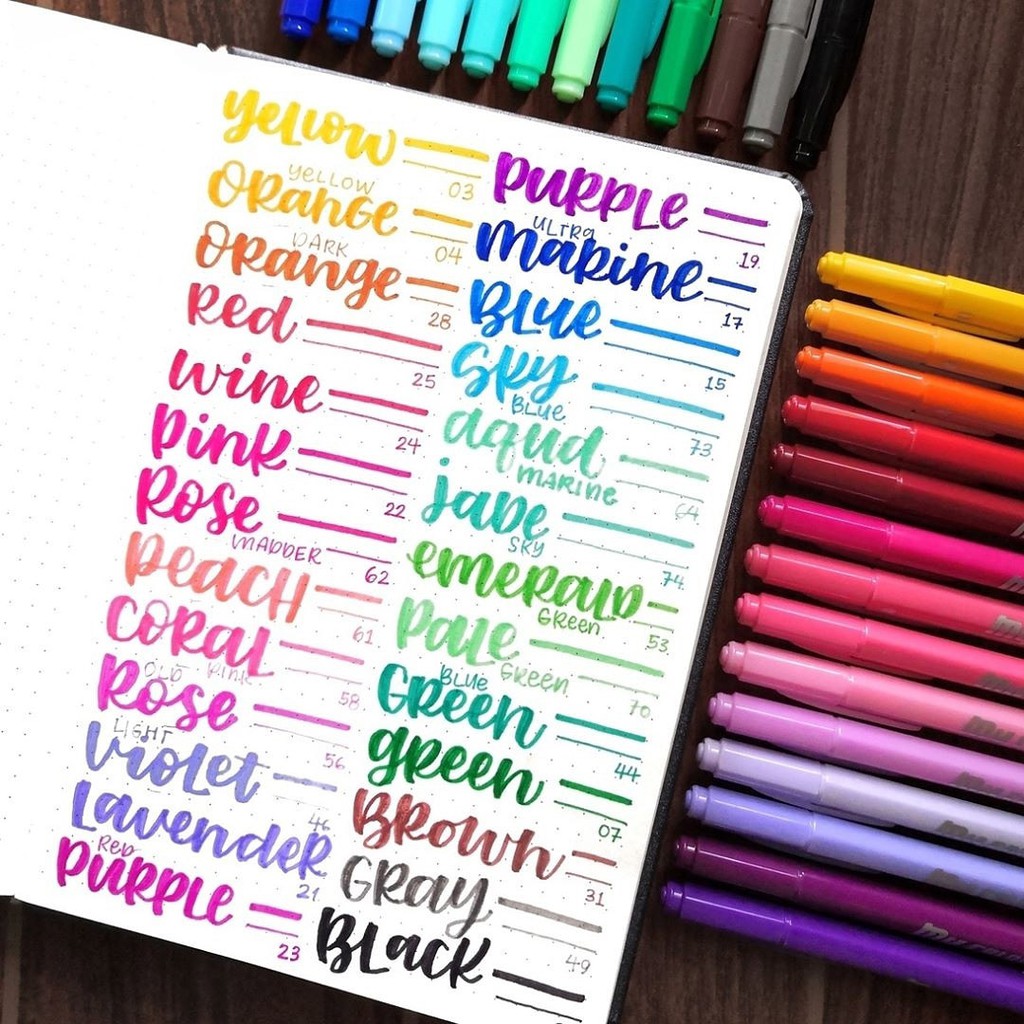 Yellow 03
Yellow
Orange 04
Dark
Orange 28
Red 25
Wine 24
Pink 22
Rose
Madder 62
Peach 61
Coral
Pink 58
Old
Rose 56
Light
Violet 46
Lavender 21
Red
Purple 23
Purple 19
Ultra
Marine 17
Blue 15
Sky
Blue 73
Aqua
Marine 64
Jade
Sky 74
Emerald
Green 53
Pale
Green 70
Blue
Green 44
Green 07
Brown 31
Gray 49
Black